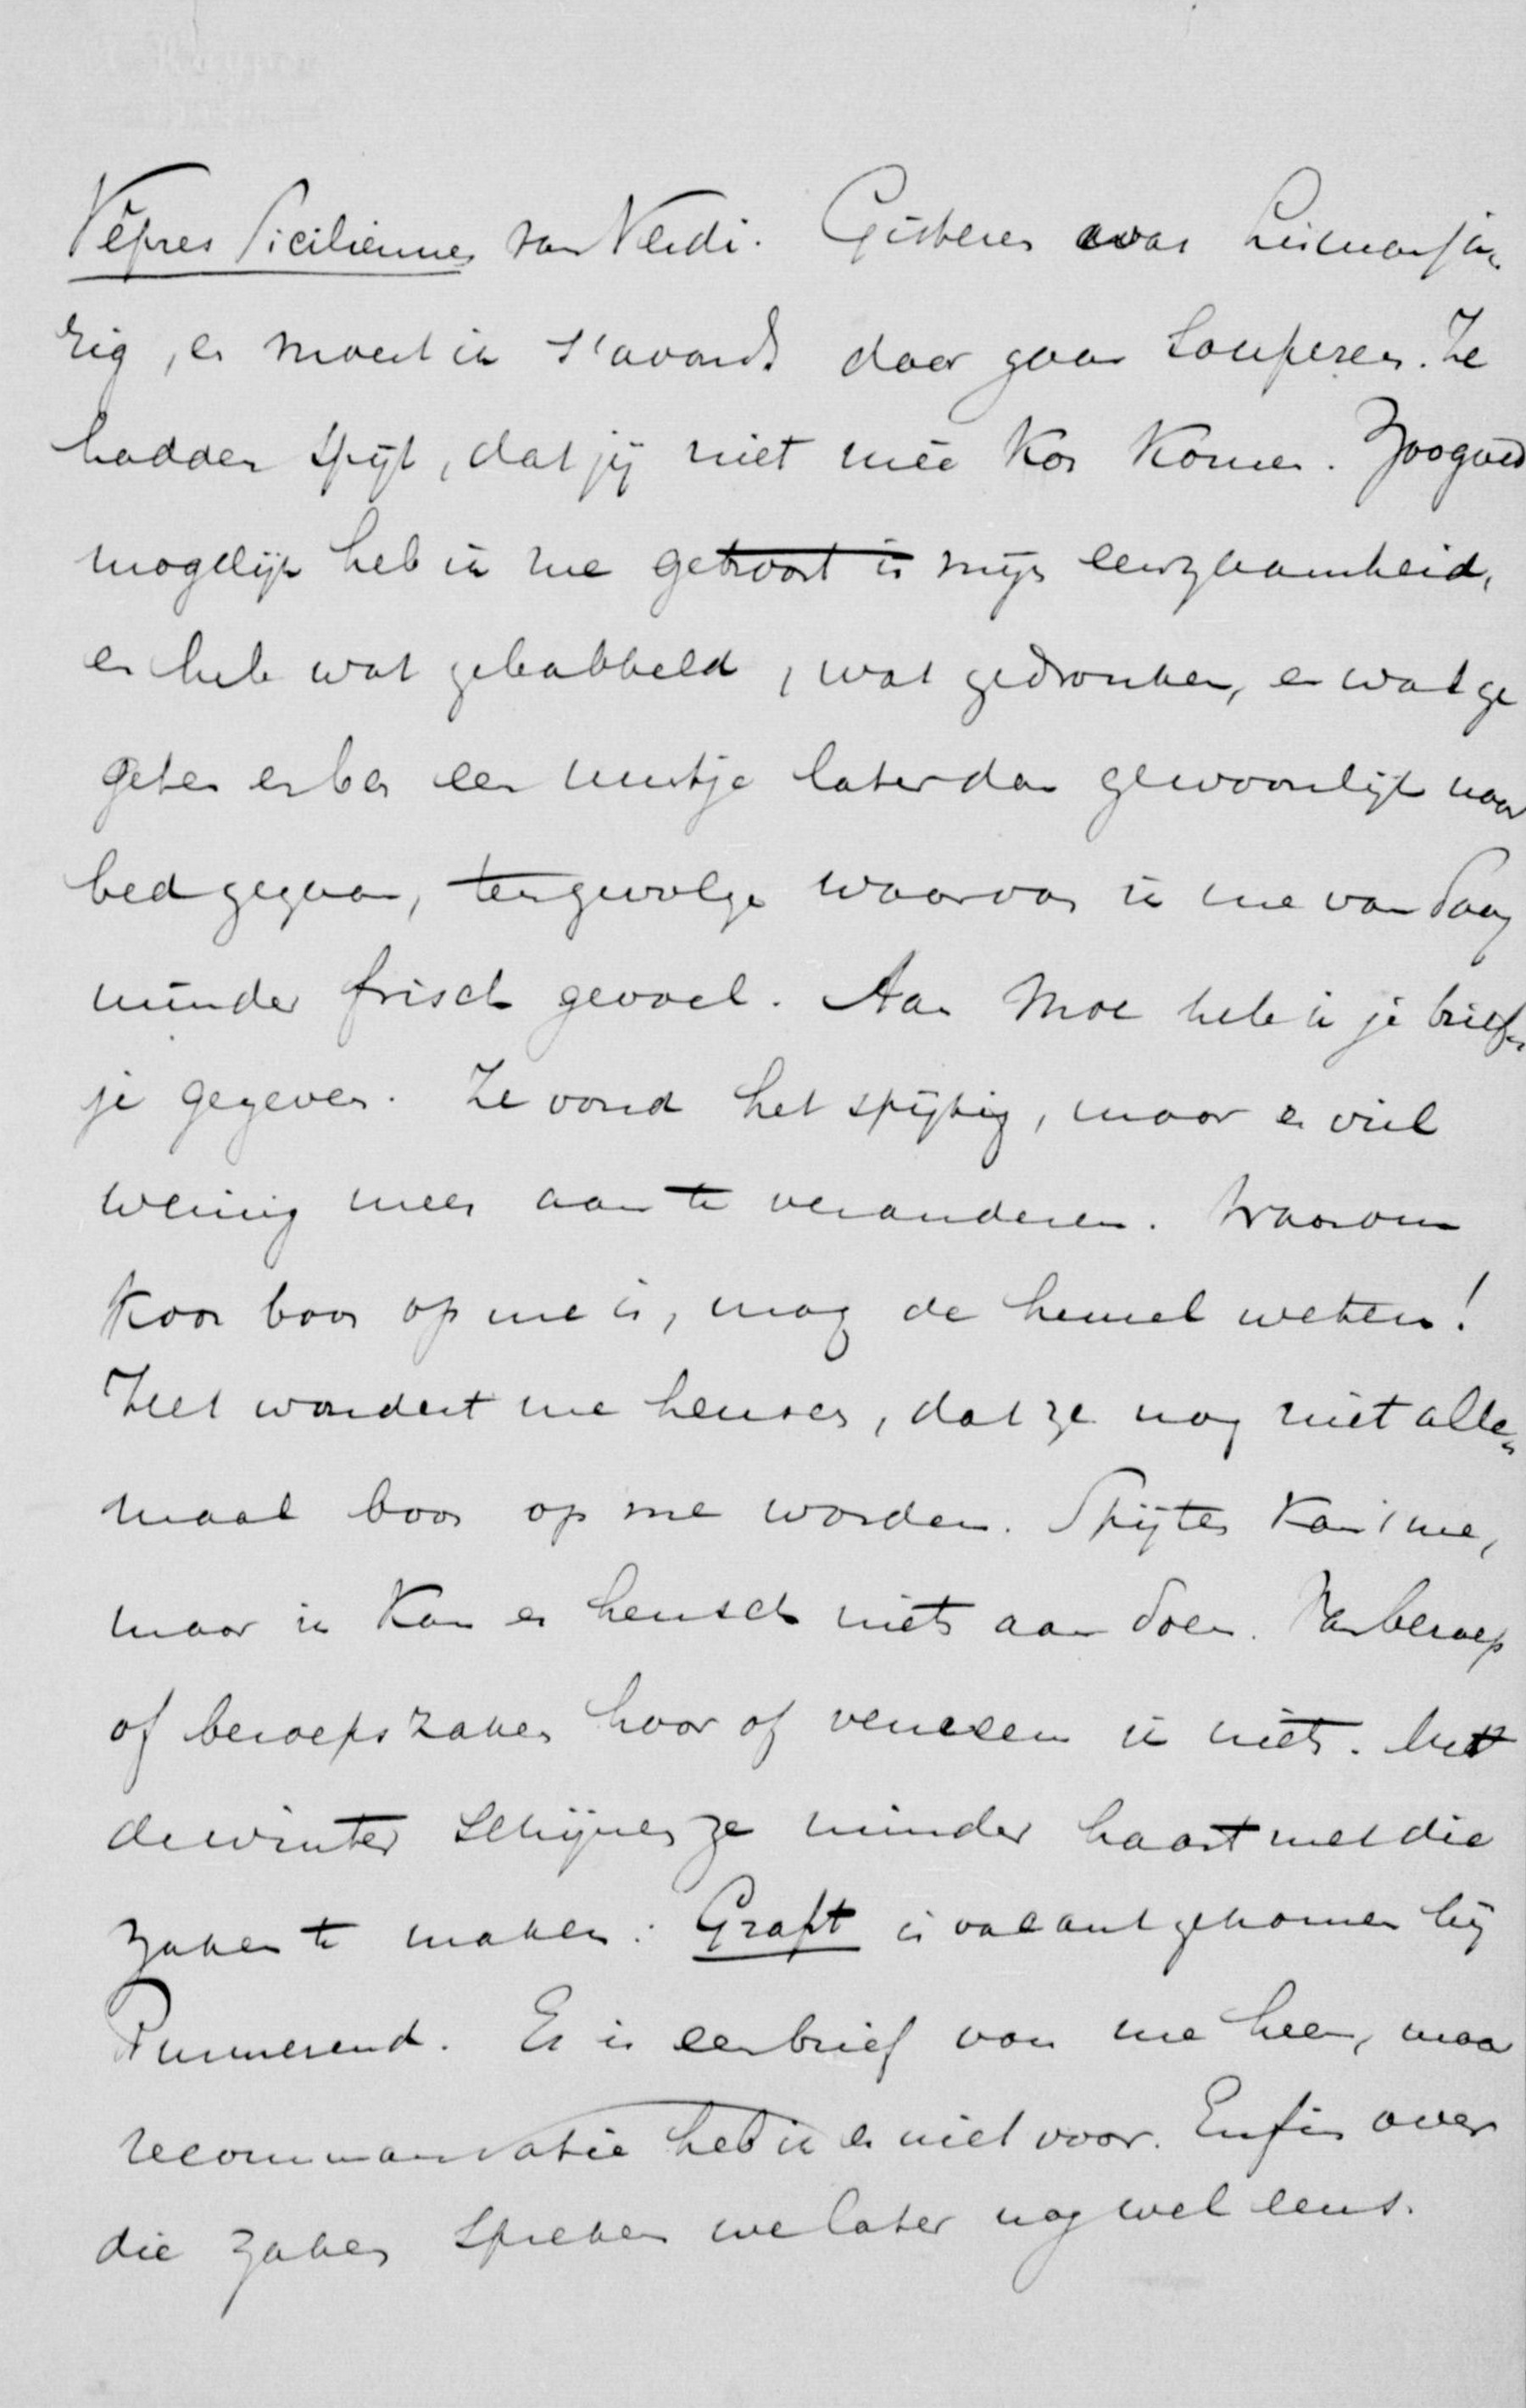 Vêpres Siciliennes van Verdi. Gisteren was Lisman ja-
rig, en moest ik s'avonds daar gaan soupeeren. Ze
hadden spijt, dat jij niet meê kon komen. Zoogoed
mogelijk heb ik me getroost in mijn eenzaamheid,
en heb wat gebabbeld, wat gedronken, en wat ge
geten en ben een uurtje later dan gewoonlijk naar
bed gegaan, tengevolge waarvan ik me van daag
minder frisch gevoel. Aan Moe heb ik je brief-
je gegeven. Ze vond het spijtig, maar er viel
weinig meer aan te veranderen. Waarom
Koos boos op me is, mag de hemel weten!
Het wondert me heusch, dat ze nog niet alle-
maal boos op me worden. Spijten kan 't me,
maar ik kan er heusch niets aan doen. Van beroep
of beroepszaken hoor of verneem ik niets. Met
de winter schijnen ze minder haast met die
zaken te maken. Graft is vacant gekomen bij
Purmerend. Er is een brief van me heen, maar
recommandatie heb ik er niet voor. Enfin over
die zaken spreken we later nog wel eens.